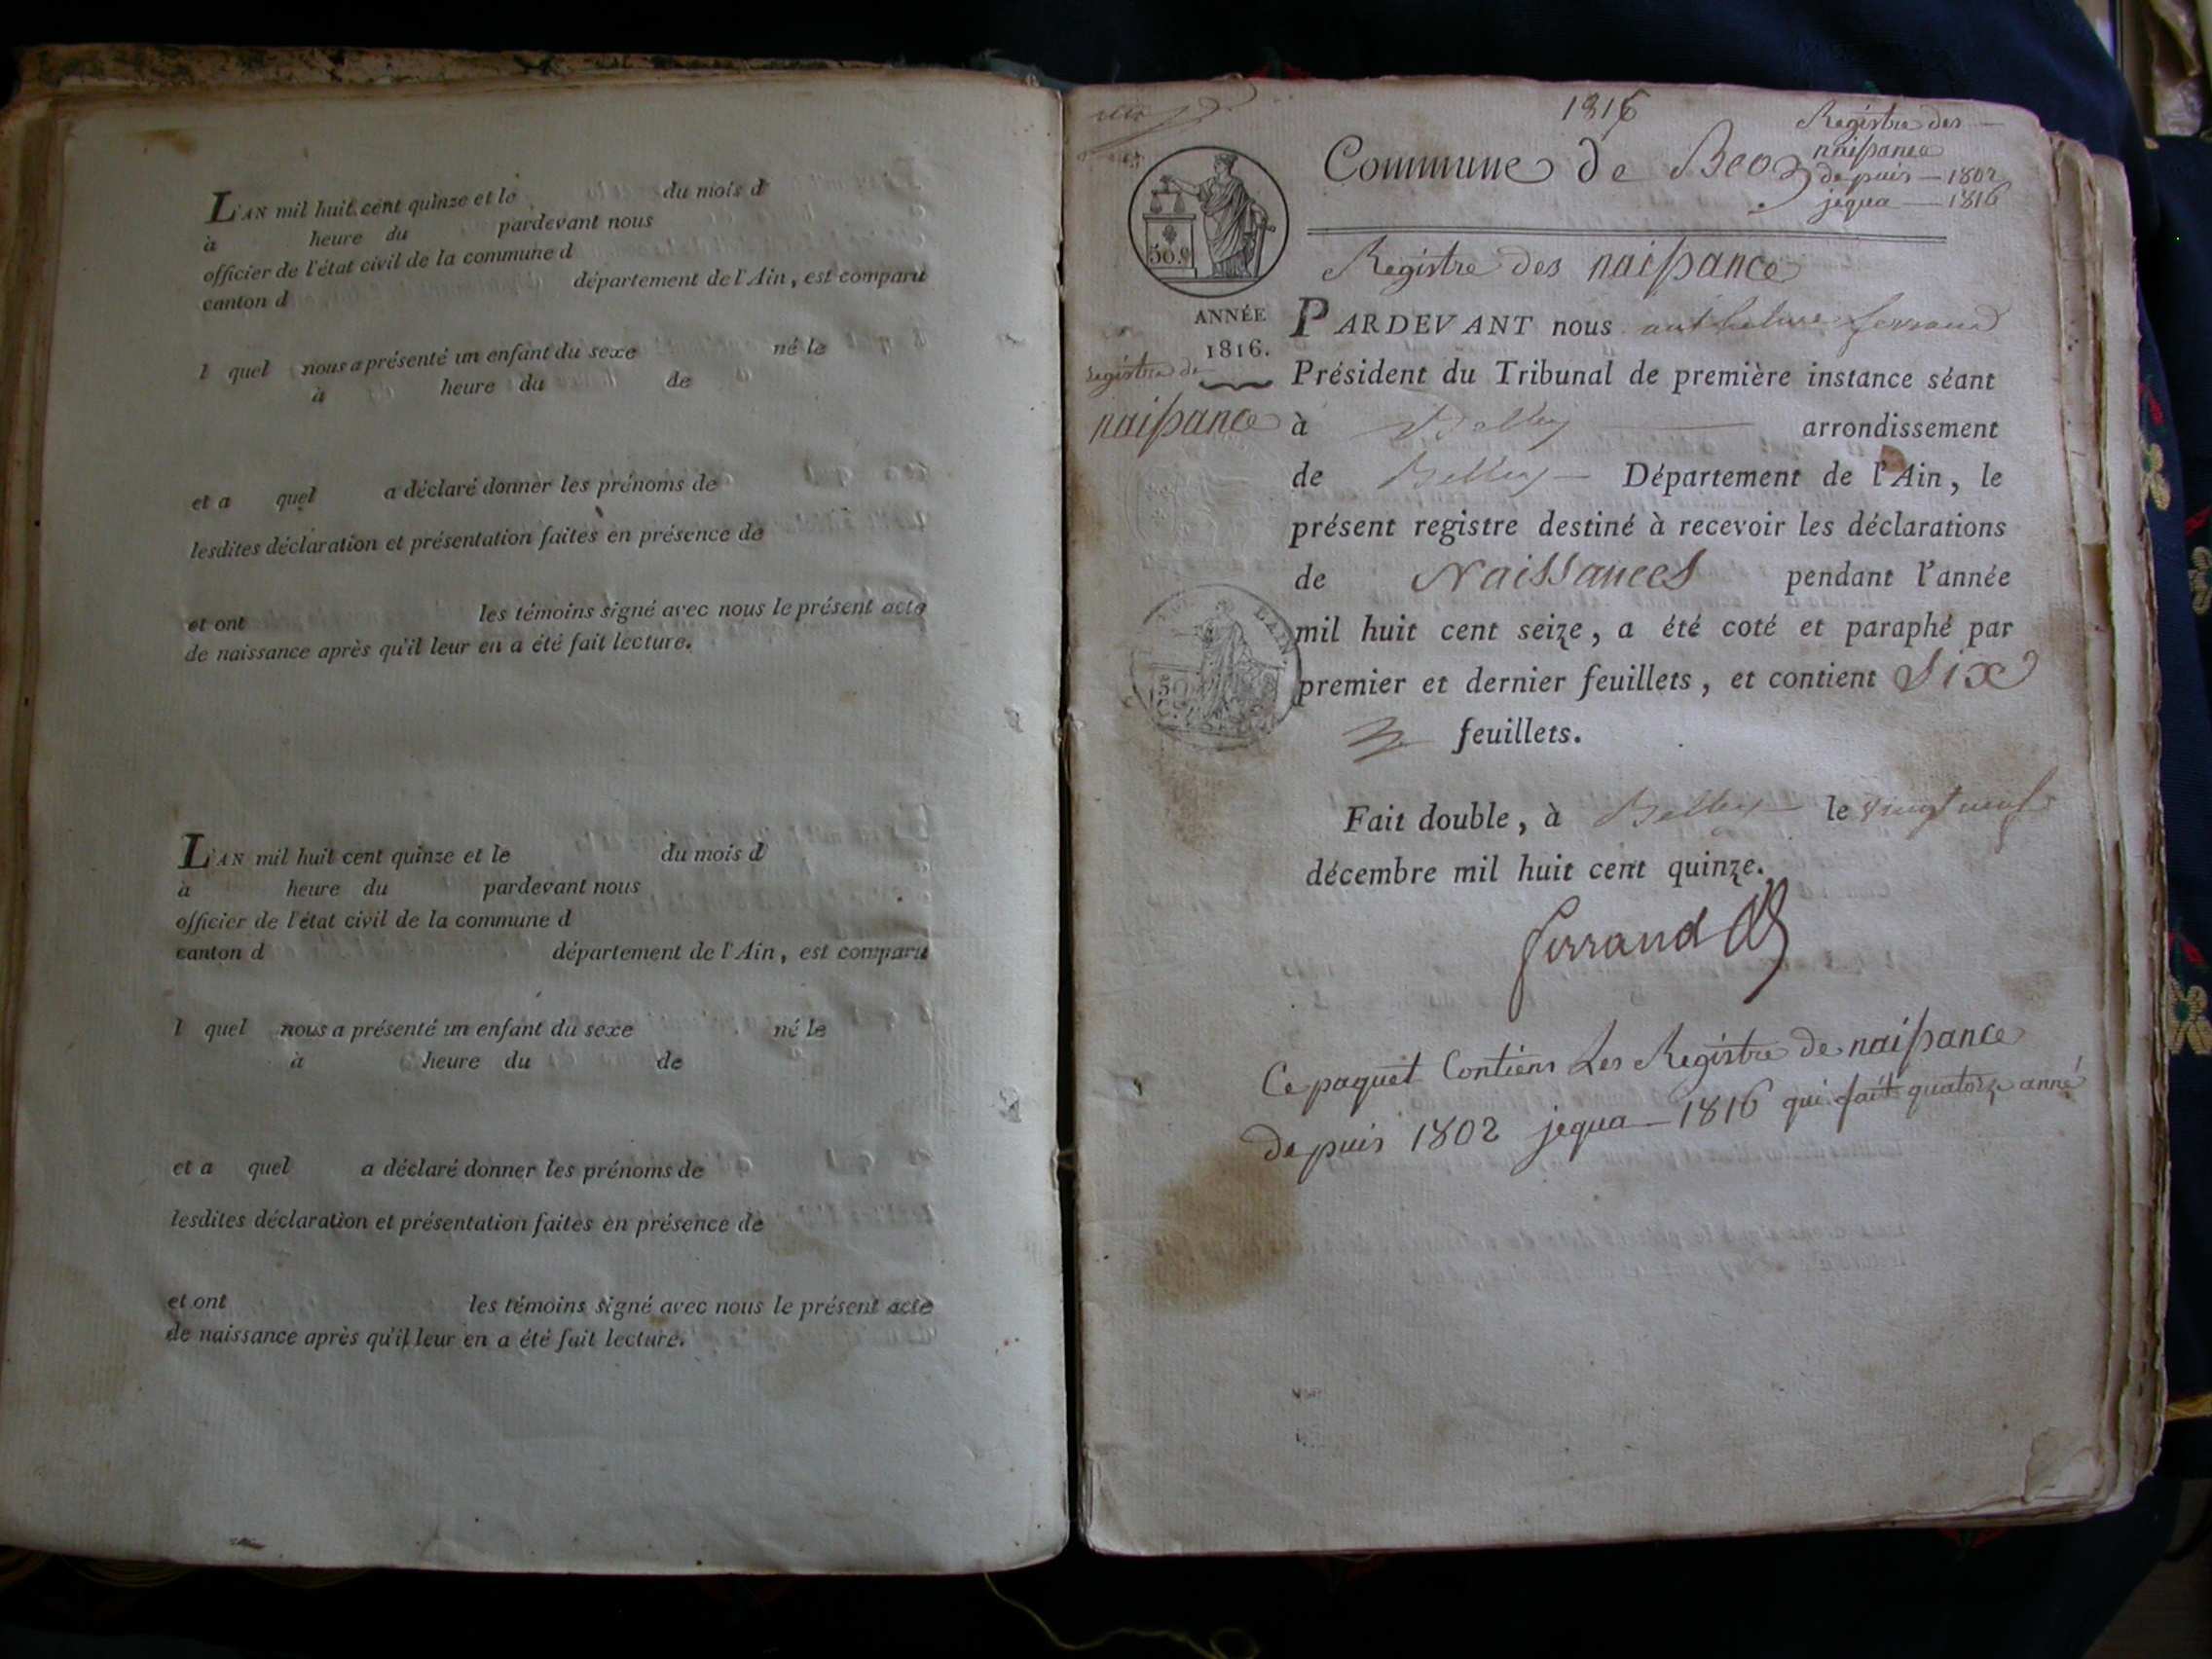 L'AN mil huit cent quinze et le du mois d
à heure du pardevant nous
officier de l'état civil de la commune d
canton d département de l'Ain, est comparu
l quel nous a présenté un enfant du sexe né le
à heure du de
et a quel a déclaré donner les prénoms de
lesdites déclaration et présentation faites en présence de
et ont les témoins signé avec nous le présent acte
de naissance après qu'il leur en a été fait lecture.
L'AN mil huit cent quinze et le du mois d
à heure du pardevant nous
officier de l'état civil de la commune d
canton d département de l'Ain, est comparu
l quel nous a présenté un enfant du sexe né le
à heure du de
et a quel a déclaré donner les prénoms de
lesdites déclaration et présentation faites en présence de
et ont les témoins signé avec nous le présent acte
de naissance après qu'il leur en a été fait lecture.
1816
Commune de Beo
Registre des
naissance
depuis — 1802
jequa — 1816
Registre des naissance
50 c
ANNÉE
1816.
Registre de
naissance
PARDEVANT nous anthelme ferrand
Président du Tribunal de première instance séant
à Belley arrondissement
de Belley Département de l'Ain, le
présent registre destiné à recevoir les déclarations
de Naissances pendant l'année
mil huit cent seize, a été coté et paraphé par
premier et dernier feuillets, et contient six
feuillets.
L'AIN
50
Fait double, à Belley le vingt neuf
décembre mil huit cent quinze.
ferrand
Ce paquet Contiens Les Registre de naissance
depuis 1802 jequa — 1816 qui fait quatorze anné